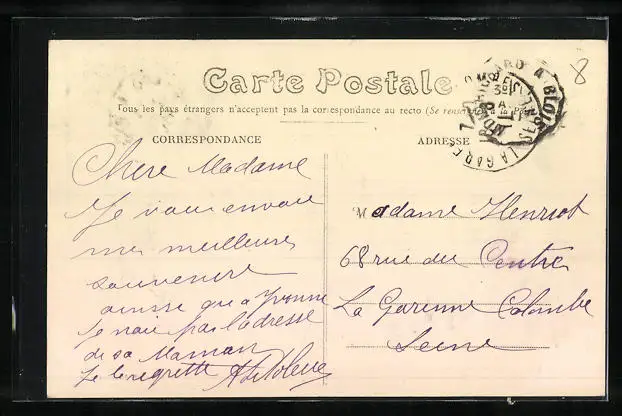 8
Carte Postale
Tous les pays étrangers n'acceptent pas la correspondance au recto (Se renseigner à la Poste)
CORRESPONDANCE
ADRESSE
LA GARE
Chere Madame
Je vous envoie
mes meilleures
souvenire
ainsse que a Yvonne
Je naie pas l'adresse
de sa Maman
Je le regrette
Madame Henriot
68 rue du Centre
La Garenne Colombe
Seine